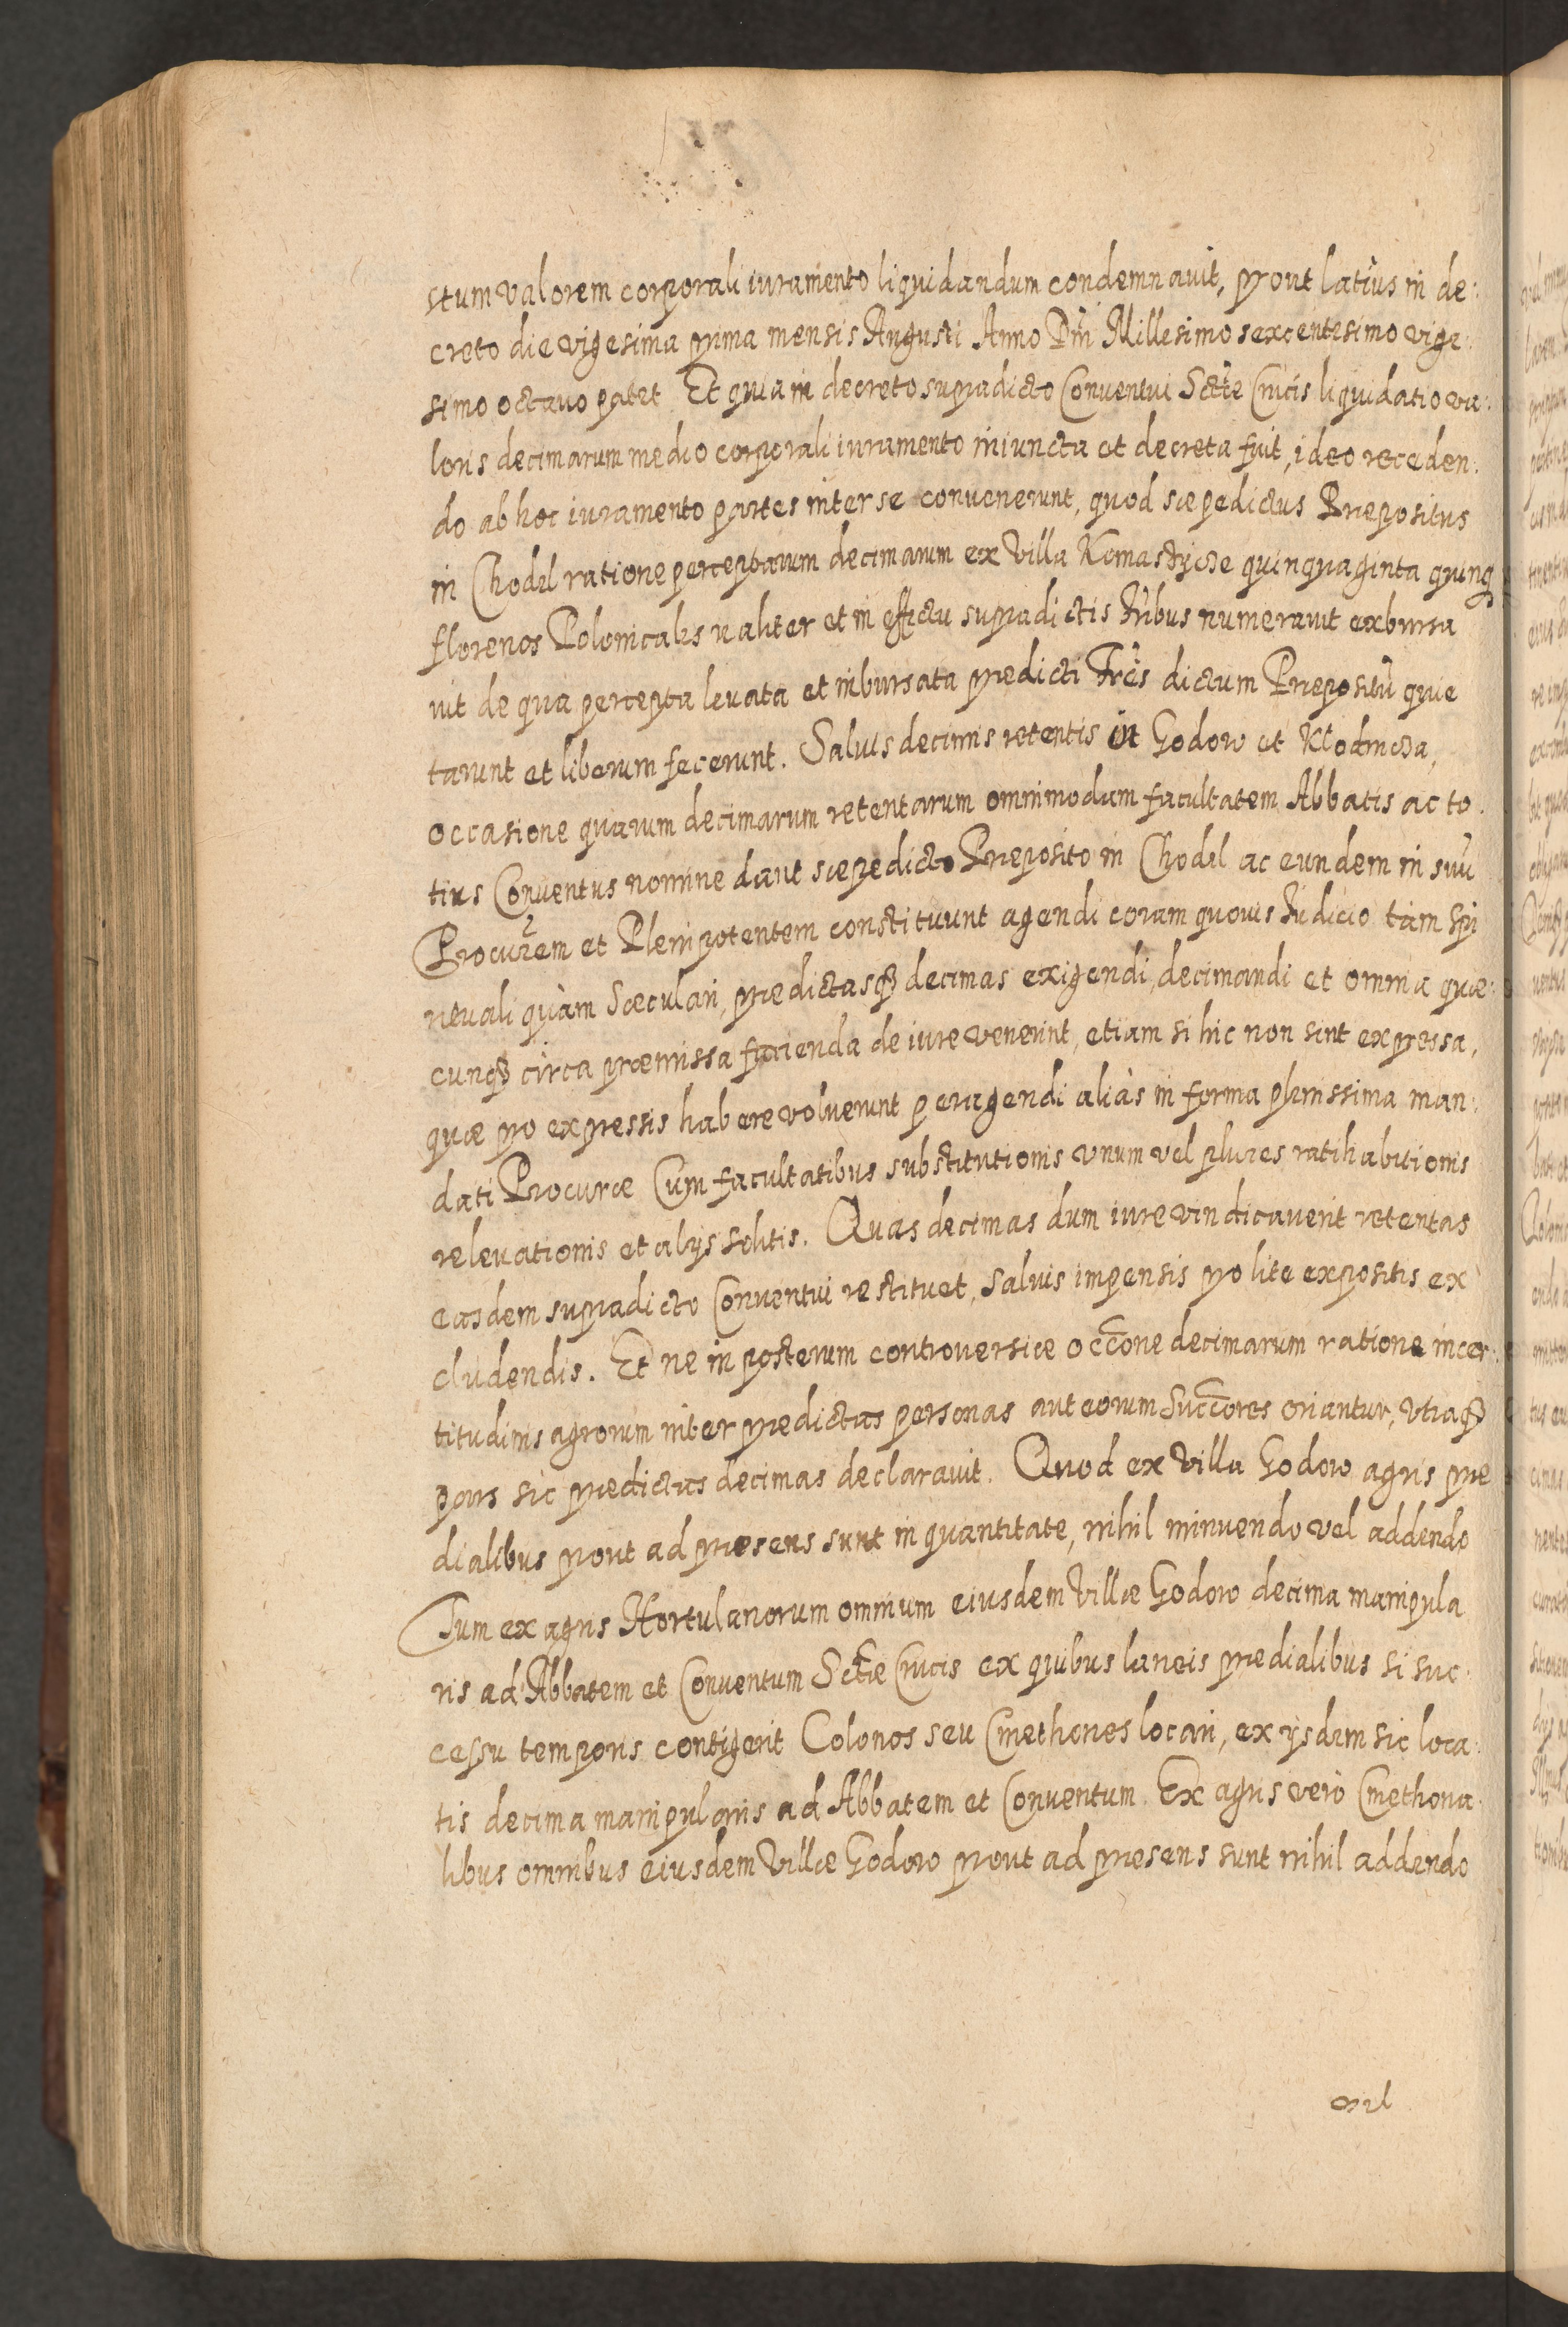 stum valorem corporali iuramento liquidandum condemnauit, prout latius in de:
creto die vigesima prima mensis Augusti Anno Dni Millesimo sexcentesimo vige
simo octauo patet Et quia in decreto supradicto Conuentui Sctæ Crucis liquidatio va:
loris decimarum medio corporali iuramento iniuncta et decreta fuit, ideo receden:
do ab hoc iuramento partes inter se conuenerunt, quod sæpedictus Præpositus
in Chodel ratione perceptarum decimarum ex Villa Komaszyce quinquaginta quinq
florenos Polonicales realiter et in effectu supradictis fribus numerauit exbursa
uit de qua percepta leuata et inbursata prædicti Frēs dictum Præpositū quie
tarunt et liberum fecerunt. Saluis decimis retentis in Godow et Kłodnicza,
occasione quarum decimarum retentarum omnimodam facultatem Abbatis ac to
tius Conuentus nomine dant sæpedicto Præposito in Chodel ac eundem in suū
Procurem et Plenipotentem constituunt agendi coram quouis Iudicio tàm Spi
rituali quàm Sæculari, prædictasq decimas exigendi, decimandi et omnia quæ:
cunq circa præmissa facienda de iure venerint, etiam si hic non sint expressa,
quæ pro expressis habere voluerunt peragendi aliàs in forma plenissima man:
dati Procuræ Cum facultatibus substitutionis vnum vel plures ratihabitionis
releuationis et alijs solitis. Quas decimas dum iure vindicauerit retentas
easdem supradicto Conuentui restituet, Saluis impensis pro lite expositis ex
cludendis. Et ne in posterum controuersiæ occōne decimarum ratione incer:
titudinis agrorum inter prædictas personas aut eorum Succores oriantur, vtraq
pars sic prædictas decimas declarauit. Quod ex Villa Godow agris præ
dialibus prout ad præsens sunt in quantitate, nihil minuendo vel addendo
Tum ex agris Hortulanorum omnium eiusdem Villæ Godow decima manipula
ris ad Abbatem et Conuentum Sctæ Crucis ex quibus laneis prædialibus si suc:
cessu temporis contigerit Colonos seu Cmethones locari, ex ijsdem sic loca:
tis decima manipularis ad Abbatem et Conuentum Ex agris verò Cmethona:
libus omnibus eiusdem Villæ Godow prout ad præsens sunt nihil addendo
vel